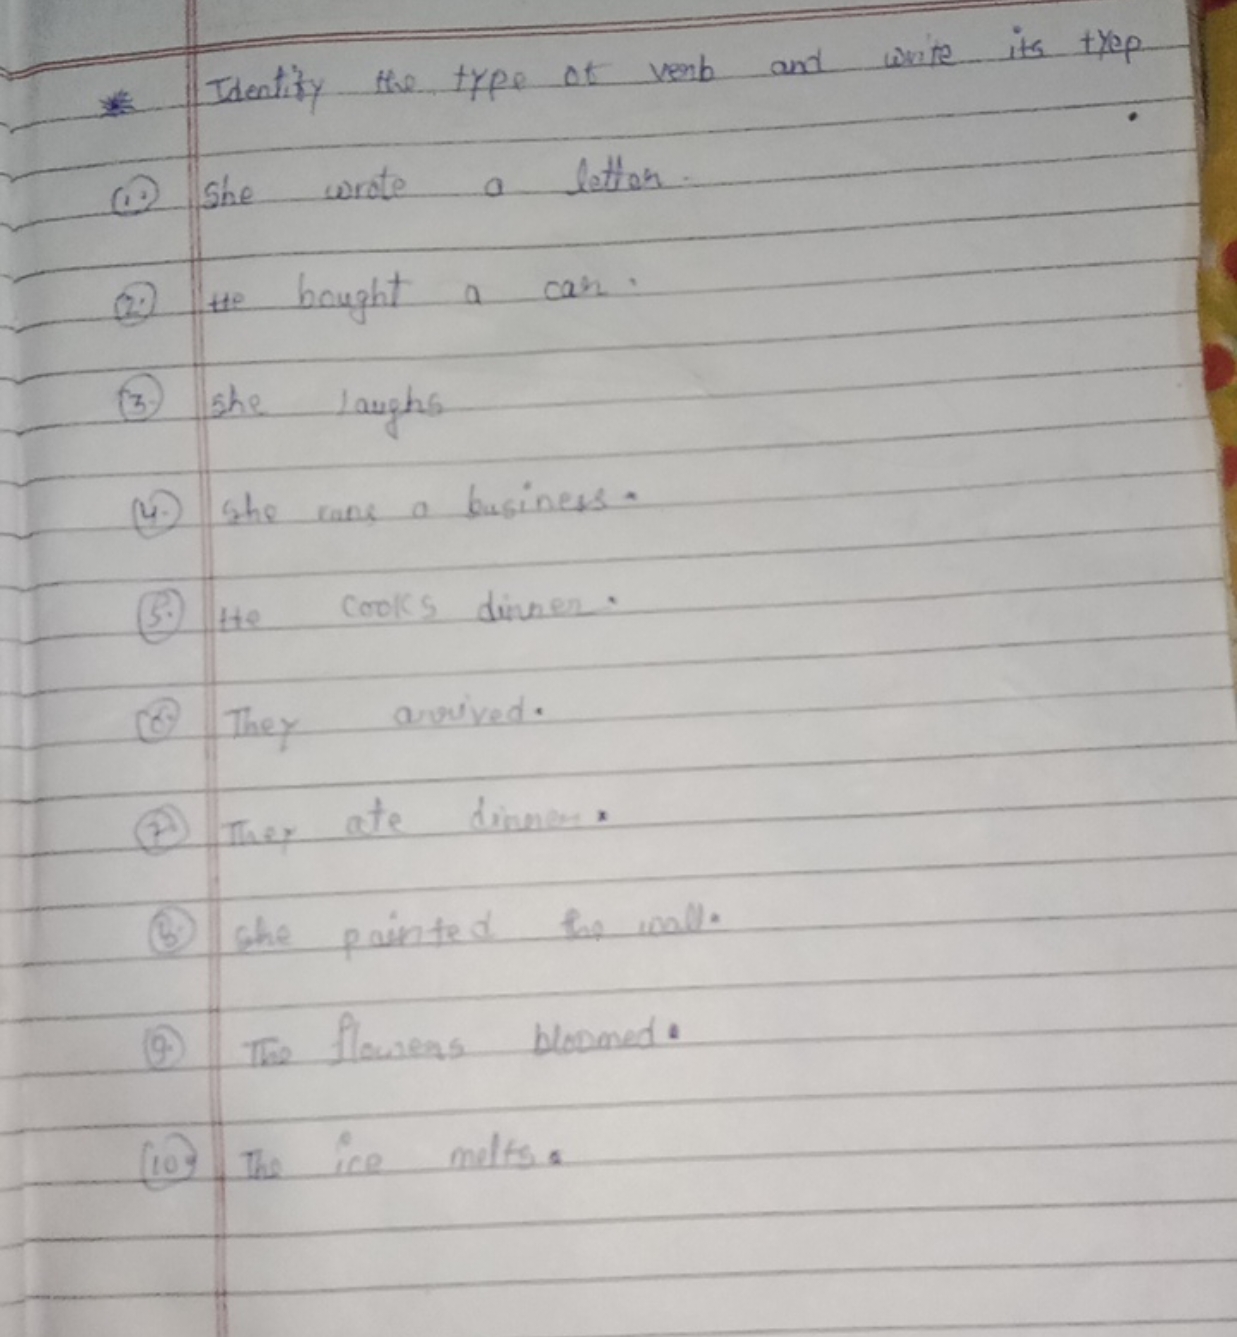 * Identify the type of verb and write its tyep.
(1.) She wrote a letter.
(2.) He bought a car.
(3.) She laughs
(4.) She runs a business.
(5.) He cooks dinner.
(6.) They arrived.
(7.) They ate dinner.
(8.) She painted the wall.
(9.) The flowers bloomed.
(10.) The ice melts.